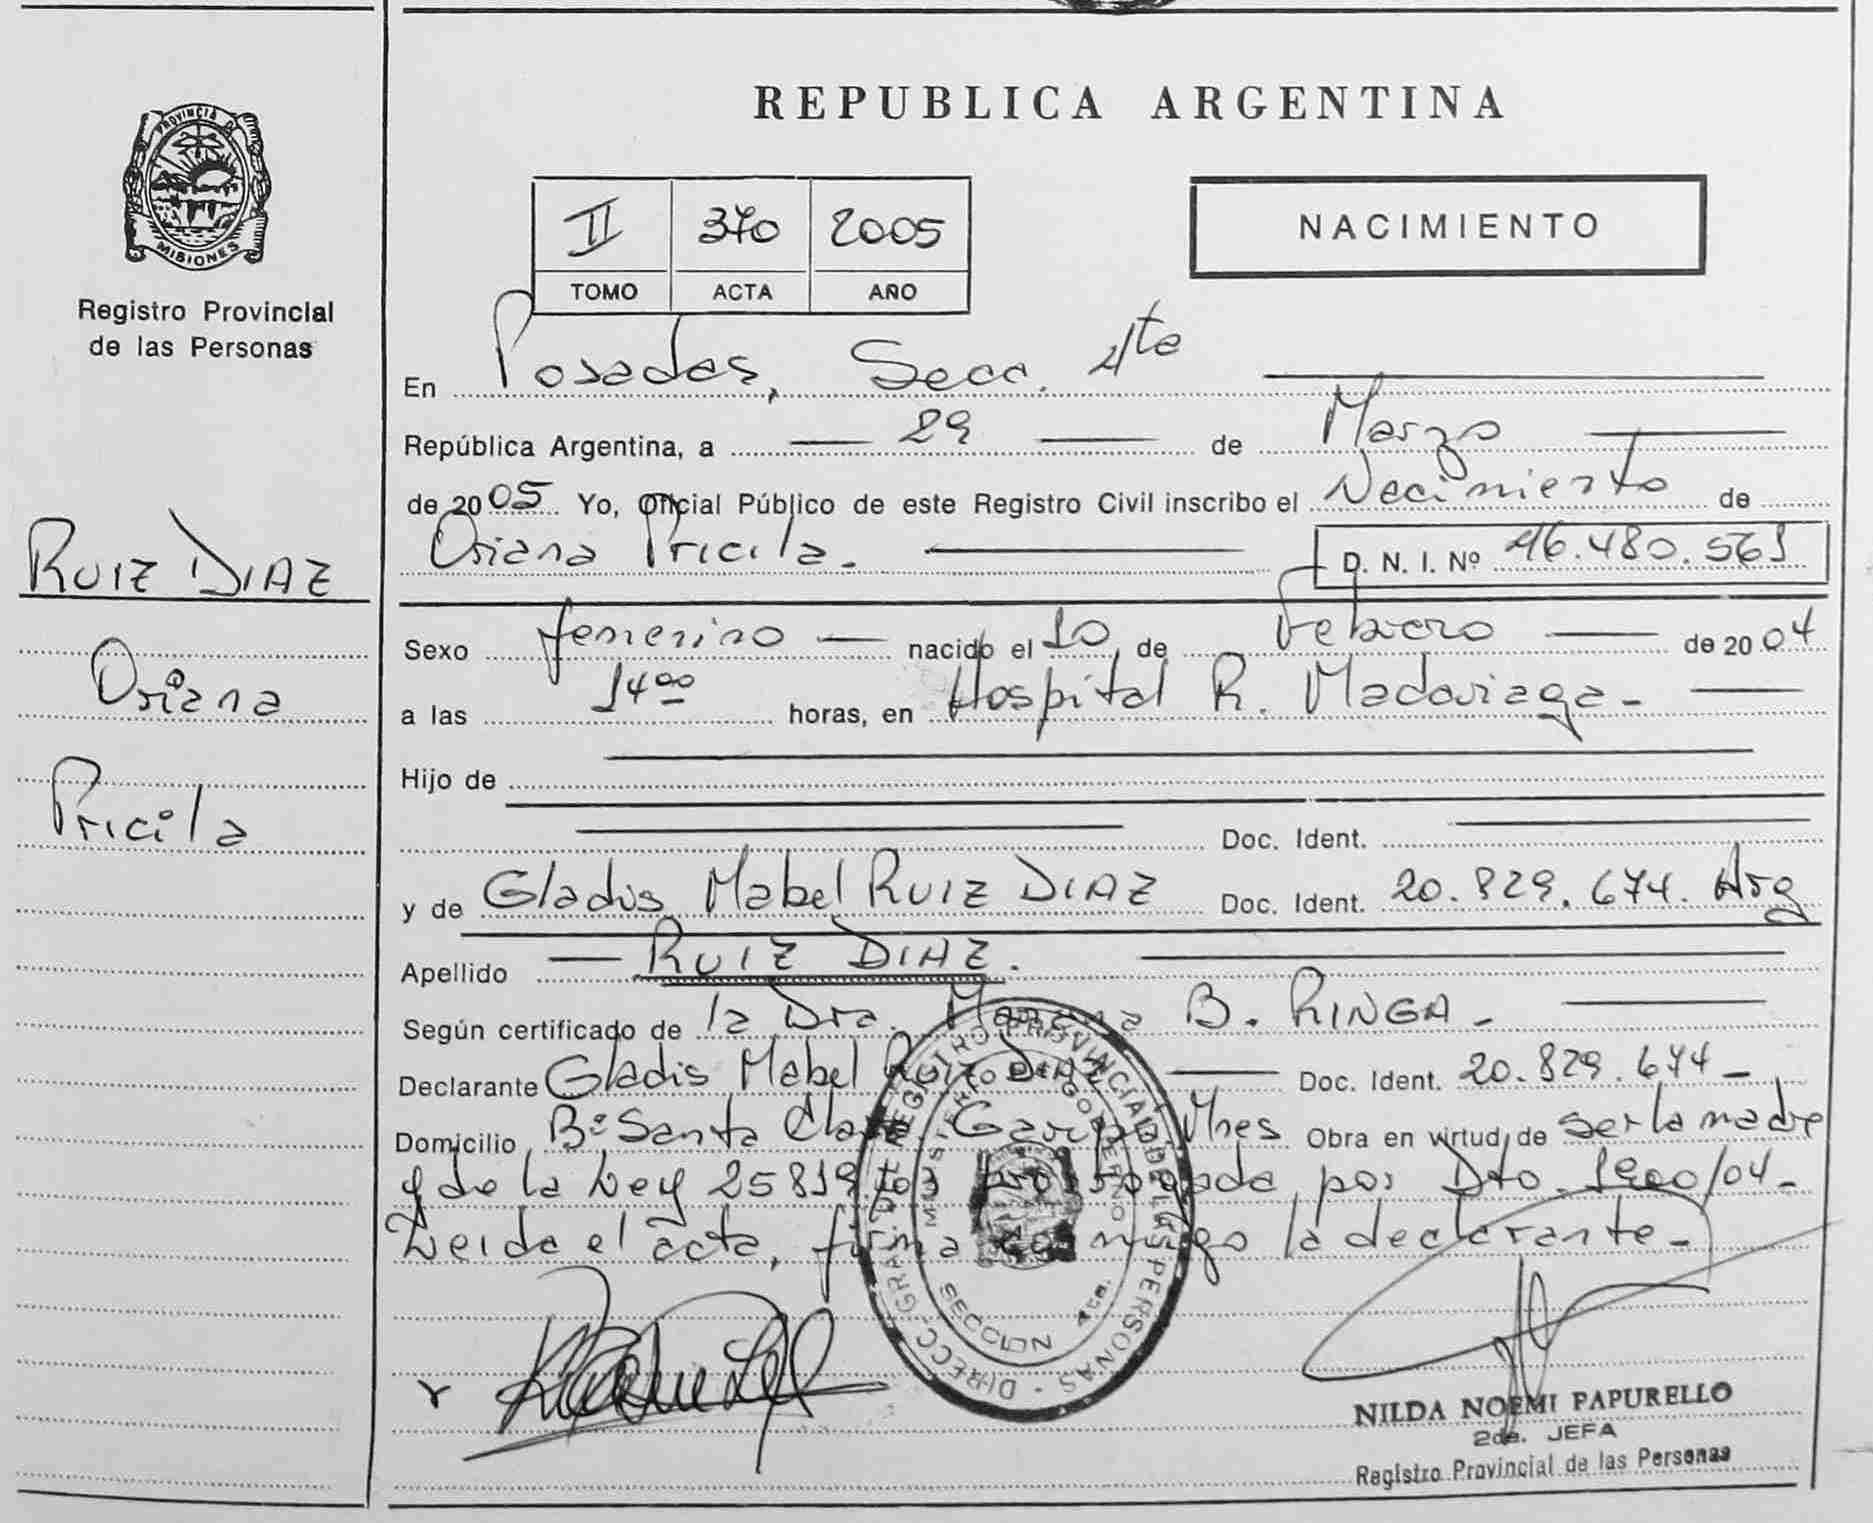 PROVINCIA DE
MISIONES
Registro Provincial
de las Personas
RUIZ DIAZ
Oriana
Pricila
REPUBLICA ARGENTINA
II 370 2005
TOMO ACTA AÑO
NACIMIENTO
En Posadas, Secc. 4ta
República Argentina, a 29 de Marzo
de 2005 Yo, Oficial Público de este Registro Civil inscribo el Nacimiento de
Oriana Pricila. D. N. I. Nº 46.480.561
Sexo femenino nacido el 10 de Febrero de 2004
a las 14 00 horas, en Hospital R. Madariaga -
Hijo de
Doc. Ident.
y de Gladis Mabel RUIZ DIAZ Doc. Ident. 20.829.674. Arg
Apellido RUIZ DIAZ.
Según certificado de la Dra. B. RINGA -
Declarante Gladis Mabel Ruiz DIAZ Doc. Ident. 20.829.674 -
Domicilio Bº Santa Clara Garupá Mnes Obra en virtud de ser la madre
y de la Ley 25819 prorrogada por Dto. 1900/04 -
Leida el acta, firma conmigo la declarante -
DIRECC. GRAL. DEL REGISTRO PROVINCIAL DE LAS PERSONAS
MINISTERIO DE GOBIERNO
SECCION 4ta.
NILDA NOEMI PAPURELLO
2da. JEFA
Registro Provincial de las Personas